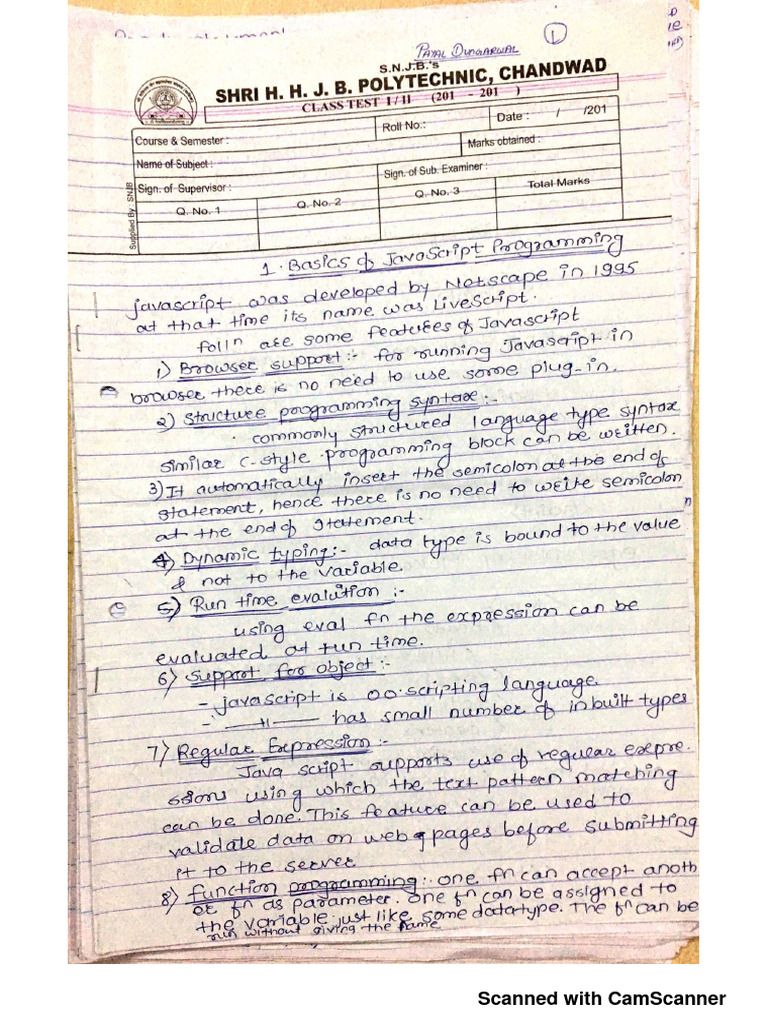 PAYAL DUNGARWAL
1
S.N.J.B.'s
SHRI H. H. J. B. POLYTECHNIC, CHANDWAD
CLASS TEST I / II (201 - 201 )
Roll No.:
Date : / /201
Course & Semester :
Marks obtained :
Name of Subject :
Sign. of Sub. Examiner :
Sign. of Supervisor :
Q. No. 1
Q. No. 2
Q. No. 3
Total Marks
Supplied By : SNJB
1. Basics of JavaScript Programming
javascript was developed by Netscape in 1995
at that time its name was LiveScript.
follⁿ are some features of Javascript
1) Browser support:- for running Javascript in
browser there is no need to use some plug-in.
2) Structure programming syntax:-
. commonly structured language type syntax
similar C-style programming block can be written.
3) It automatically insert the semicolon at the end of
statement, hence there is no need to write semicolon
at the end of statement.
4) Dynamic typing:- data type is bound to the value
& not to the variable.
5) Run time evalution :-
using eval fn the expression can be
evaluated at run time.
6) support for object:-
- javascript is OO. scripting language.
- —〃— has small number of inbuilt types
7) Regular Expression:-
Java script supports use of regular expre.
ssions using which the text pattern matching
can be done. This feature can be used to
validate data on web pages before submitting
it to the server
8) function programming:. one fn can accept anoth
er fn as parameter. one fn can be assigned to
the variable just like some datatype. The fn can be
run without giving the name
Scanned with CamScanner